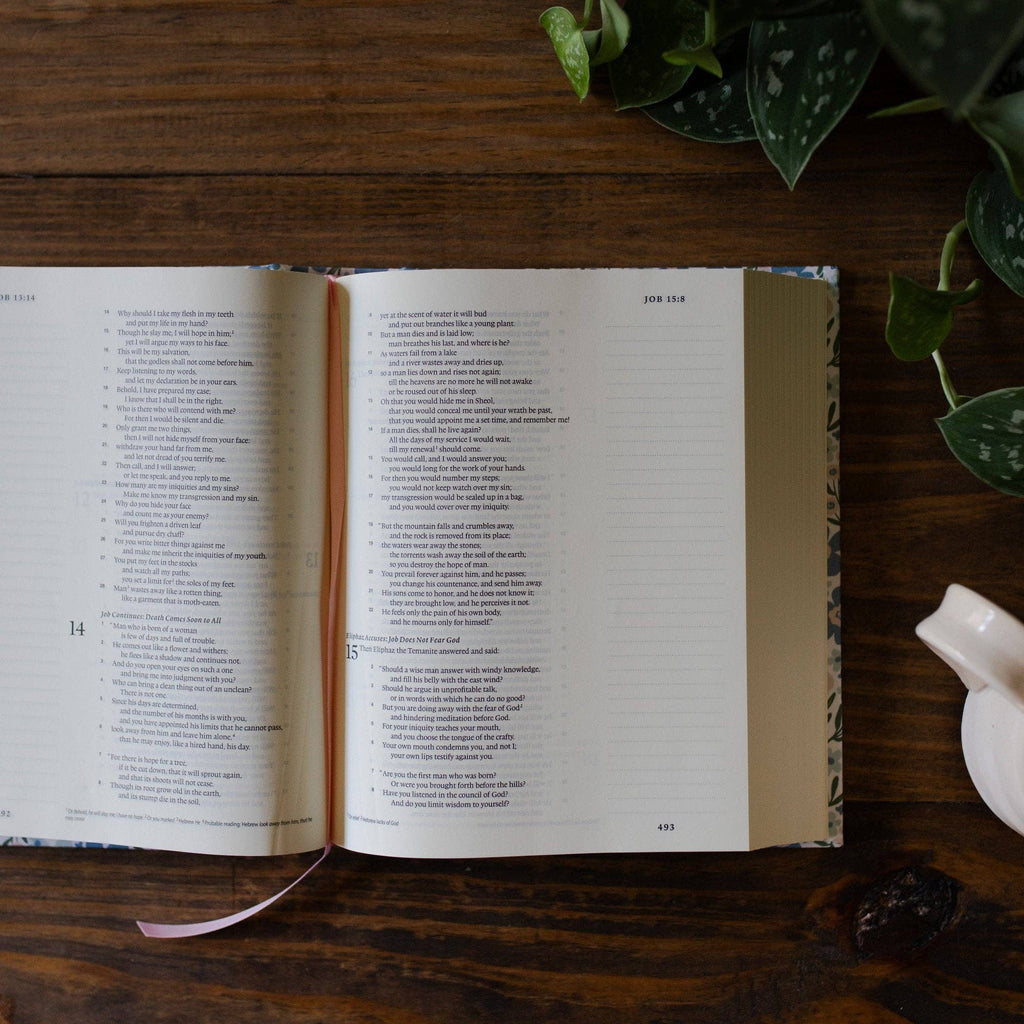 JOB 13:14
14 Why should I take my flesh in my teeth
and put my life in my hand?
15 Though he slay me, I will hope in him;1
yet I will argue my ways to his face.
16 This will be my salvation,
that the godless shall not come before him.
17 Keep listening to my words,
and let my declaration be in your ears.
18 Behold, I have prepared my case;
I know that I shall be in the right.
19 Who is there who will contend with me?
For then I would be silent and die.
20 Only grant me two things,
then I will not hide myself from your face:
21 withdraw your hand far from me,
and let not dread of you terrify me.
22 Then call, and I will answer;
or let me speak, and you reply to me.
23 How many are my iniquities and my sins?
Make me know my transgression and my sin.
24 Why do you hide your face
and count me as your enemy?
25 Will you frighten a driven leaf
and pursue dry chaff?
26 For you write bitter things against me
and make me inherit the iniquities of my youth.
27 You put my feet in the stocks
and watch all my paths;
you set a limit for2 the soles of my feet.
28 Man3 wastes away like a rotten thing,
like a garment that is moth-eaten.
Job Continues: Death Comes Soon to All
14 1 "Man who is born of a woman
is few of days and full of trouble.
2 He comes out like a flower and withers;
he flees like a shadow and continues not.
3 And do you open your eyes on such a one
and bring me into judgment with you?
4 Who can bring a clean thing out of an unclean?
There is not one.
5 Since his days are determined,
and the number of his months is with you,
and you have appointed his limits that he cannot pass,
6 look away from him and leave him alone,4
that he may enjoy, like a hired hand, his day.
7 "For there is hope for a tree,
if it be cut down, that it will sprout again,
and that its shoots will not cease.
8 Though its root grow old in the earth,
and its stump die in the soil,
1 Or Behold, he will slay me; I have no hope 2 Or you marked 3 Hebrew He 4 Probable reading; Hebrew look away from him, that he
may cease
492
JOB 15:8
9 yet at the scent of water it will bud
and put out branches like a young plant.
10 But a man dies and is laid low;
man breathes his last, and where is he?
11 As waters fail from a lake
and a river wastes away and dries up,
12 so a man lies down and rises not again;
till the heavens are no more he will not awake
or be roused out of his sleep.
13 Oh that you would hide me in Sheol,
that you would conceal me until your wrath be past,
that you would appoint me a set time, and remember me!
14 If a man dies, shall he live again?
All the days of my service I would wait,
till my renewal1 should come.
15 You would call, and I would answer you;
you would long for the work of your hands.
16 For then you would number my steps;
you would not keep watch over my sin;
17 my transgression would be sealed up in a bag,
and you would cover over my iniquity.
18 "But the mountain falls and crumbles away,
and the rock is removed from its place;
19 the waters wear away the stones;
the torrents wash away the soil of the earth;
so you destroy the hope of man.
20 You prevail forever against him, and he passes;
you change his countenance, and send him away.
21 His sons come to honor, and he does not know it;
they are brought low, and he perceives it not.
22 He feels only the pain of his own body,
and he mourns only for himself."
Eliphaz Accuses: Job Does Not Fear God
15 Then Eliphaz the Temanite answered and said:
2 "Should a wise man answer with windy knowledge,
and fill his belly with the east wind?
3 Should he argue in unprofitable talk,
or in words with which he can do no good?
4 But you are doing away with the fear of God2
and hindering meditation before God.
5 For your iniquity teaches your mouth,
and you choose the tongue of the crafty.
6 Your own mouth condemns you, and not I;
your own lips testify against you.
7 "Are you the first man who was born?
Or were you brought forth before the hills?
8 Have you listened in the council of God?
And do you limit wisdom to yourself?
1 Or relief 2 Hebrew lacks of God
493